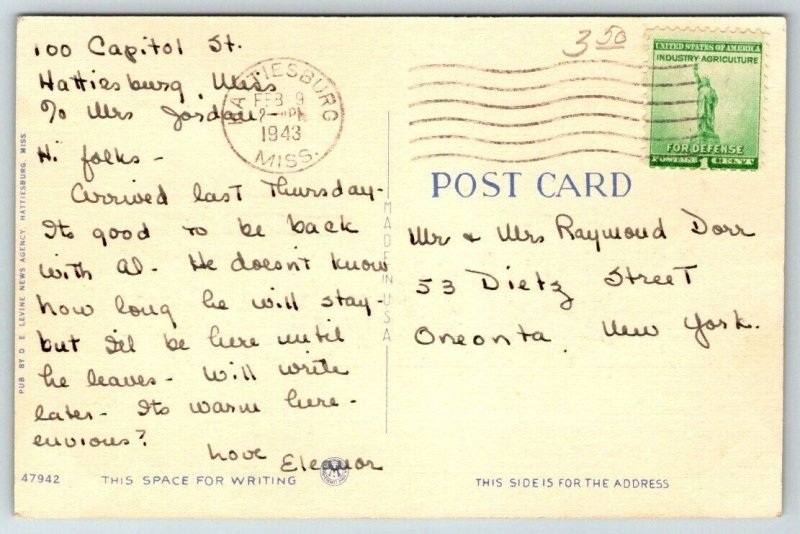 100 Capitol St.
Hattiesburg, Miss
℅ Mrs Jordan
Hi folks -
Arrived last Thursday -
Its good to be back
with Al. He doesn't know
how long he will stay -
but I'll be here until
he leaves - Will write
later - Its warm here -
envious?
Love
Eleanor
3 50
HATTIESBURG
FEB 9
2 - PM
1943
MISS.
UNITED STATES OF AMERICA
INDUSTRY·AGRICULTURE
FOR DEFENSE
POSTAGE 1 CENT
POST CARD
Mr & Mrs Raymond Dorr
53 Dietz Street
Oneonta, New York.
MADE IN USA
PUB BY D. E. LEVINE NEWS AGENCY, HATTIESBURG, MISS.
47942
THIS SPACE FOR WRITING
THIS SIDE IS FOR THE ADDRESS